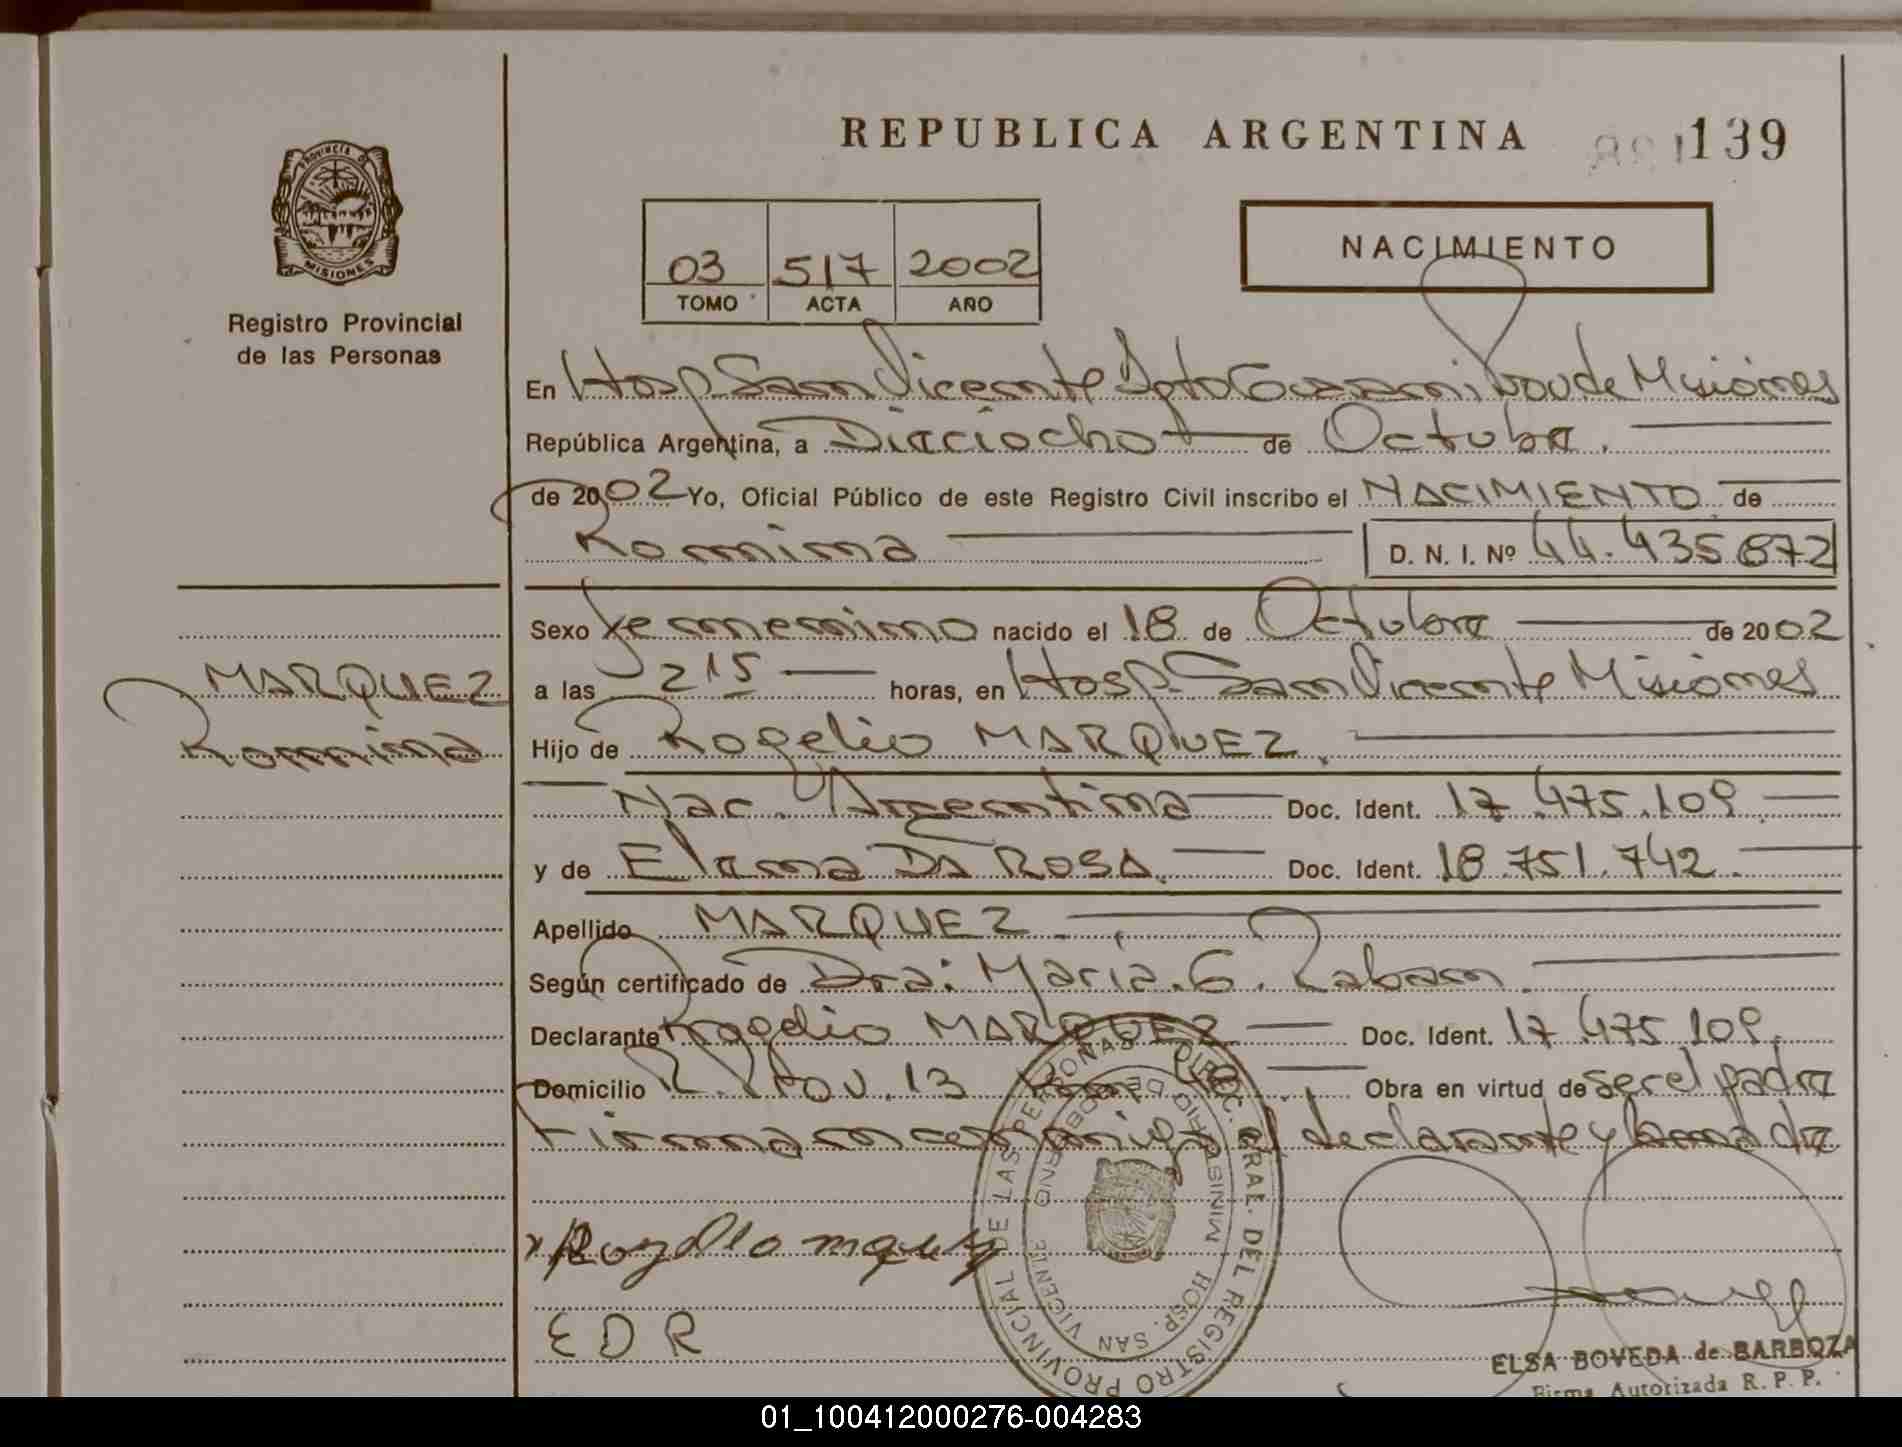 REPUBLICA ARGENTINA 139
PROVINCIA DE MISIONES
Registro Provincial
de las Personas
03 517 2002
TOMO ACTA AÑO
NACIMIENTO
En Hosp. San Vicente Dpto Guarani Prov de Misiones
República Argentina, a Dieciocho de Octubre.
de 2002 Yo, Oficial Público de este Registro Civil inscribo el NACIMIENTO de
Romina D. N. I. Nº 44.435.872
Sexo femenino nacido el 18 de Octubre de 2002
MARQUEZ
Romina
a las 2 15 horas, en Hosp. San Vicente Misiones
Hijo de Rogelio MARQUEZ.
Nac. Argentina Doc. Ident. 17.475.109.
y de Elena DA ROSA. Doc. Ident. 18.751.742.
Apellido MARQUEZ.
Según certificado de Dra: Maria. G. Zaban.
Declarante Rogelio MARQUEZ Doc. Ident. 17.475.109.
Domicilio R. Prov. 13 Km Obra en virtud de ser el padre
Firman conmigo el declarante y la madre
Rogelio
EDR
DIRECC. GRAL. DEL REGISTRO PROVINCIAL DE LAS PERSONAS
MINISTERIO DE GOBIERNO
HOSP. SAN VICENTE
ELSA BOVEDA de BARBOZA
Firma Autorizada R. P. P.
01_100412000276-004283